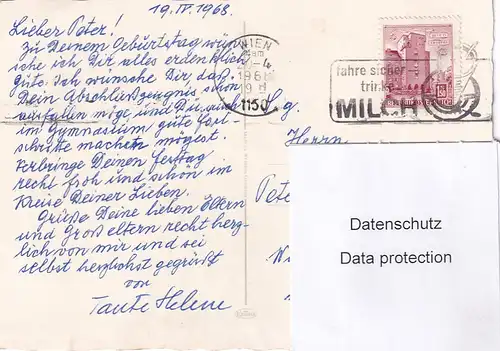 19. IV. 1968.
Lieber Peter!
Zu Deinem Geburtstag wün-
sche ich Dir alles erdenklich
Gute. Ich wünsche Dir, daß
Dein Abschlußzeugnis schön
ausfallen möge und Du auch
im Gymnasium gute Fort-
schritte machen mögest.
Verbringe Deinen Festtag
recht froh und schön im
Kreise Deiner Lieben.
Grüße Deine lieben Eltern
und Großeltern recht herz-
lich von mir und sei
selbst herzlichst gegrüßt
von
Tante Helene
WIEN
1150
fahre sicher
trinke
MILCH
S. g.
Herrn
Pete
Datenschutz
Data protection